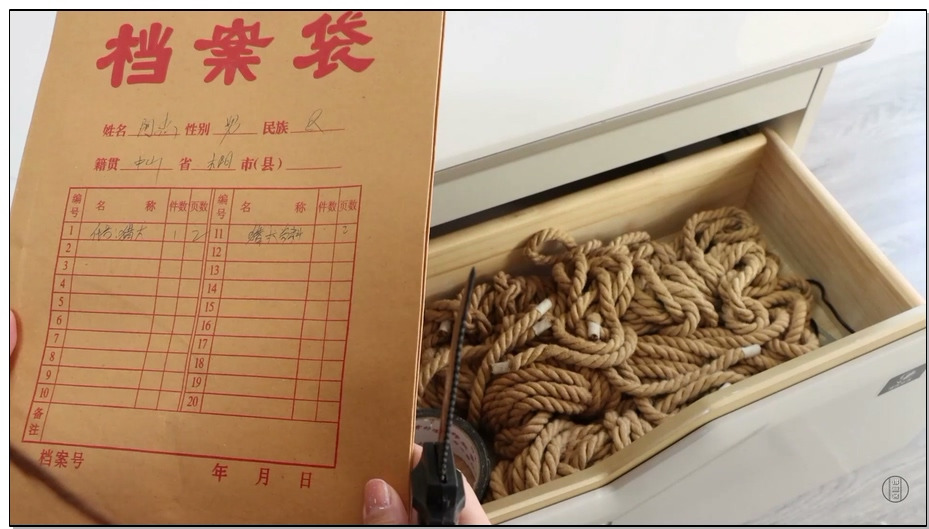 档案袋
姓名 性别 男 民族 汉
籍贯 中山 省 市(县)
编号 名 称 件数 页数 编号 名 称 件数 页数
1 1 2 11 3
2 12
3 13
4 14
5 15
6 16
7 17
8 18
9 19
10 20
备注
档案号
年 月 日